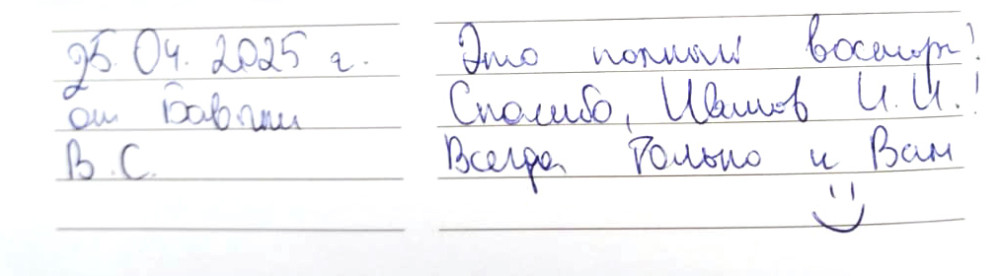 25.04.2025 г.
от
В.С.
Это полный восторг!
Спасибо, Иванов И.И.!
Всегда только к Вам